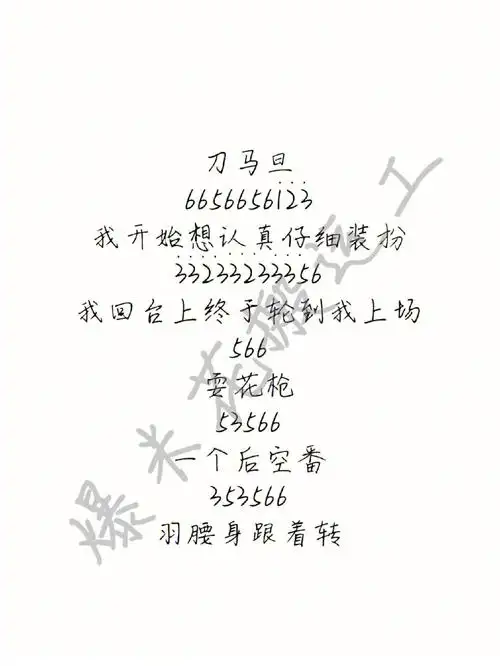 刀马旦
6656656123
我开始想认真仔细装扮
33233233356
我回台上终于轮到我上场
566
耍花枪
53566
一个后空番
353566
羽腰身跟着转
爆米花搬运工